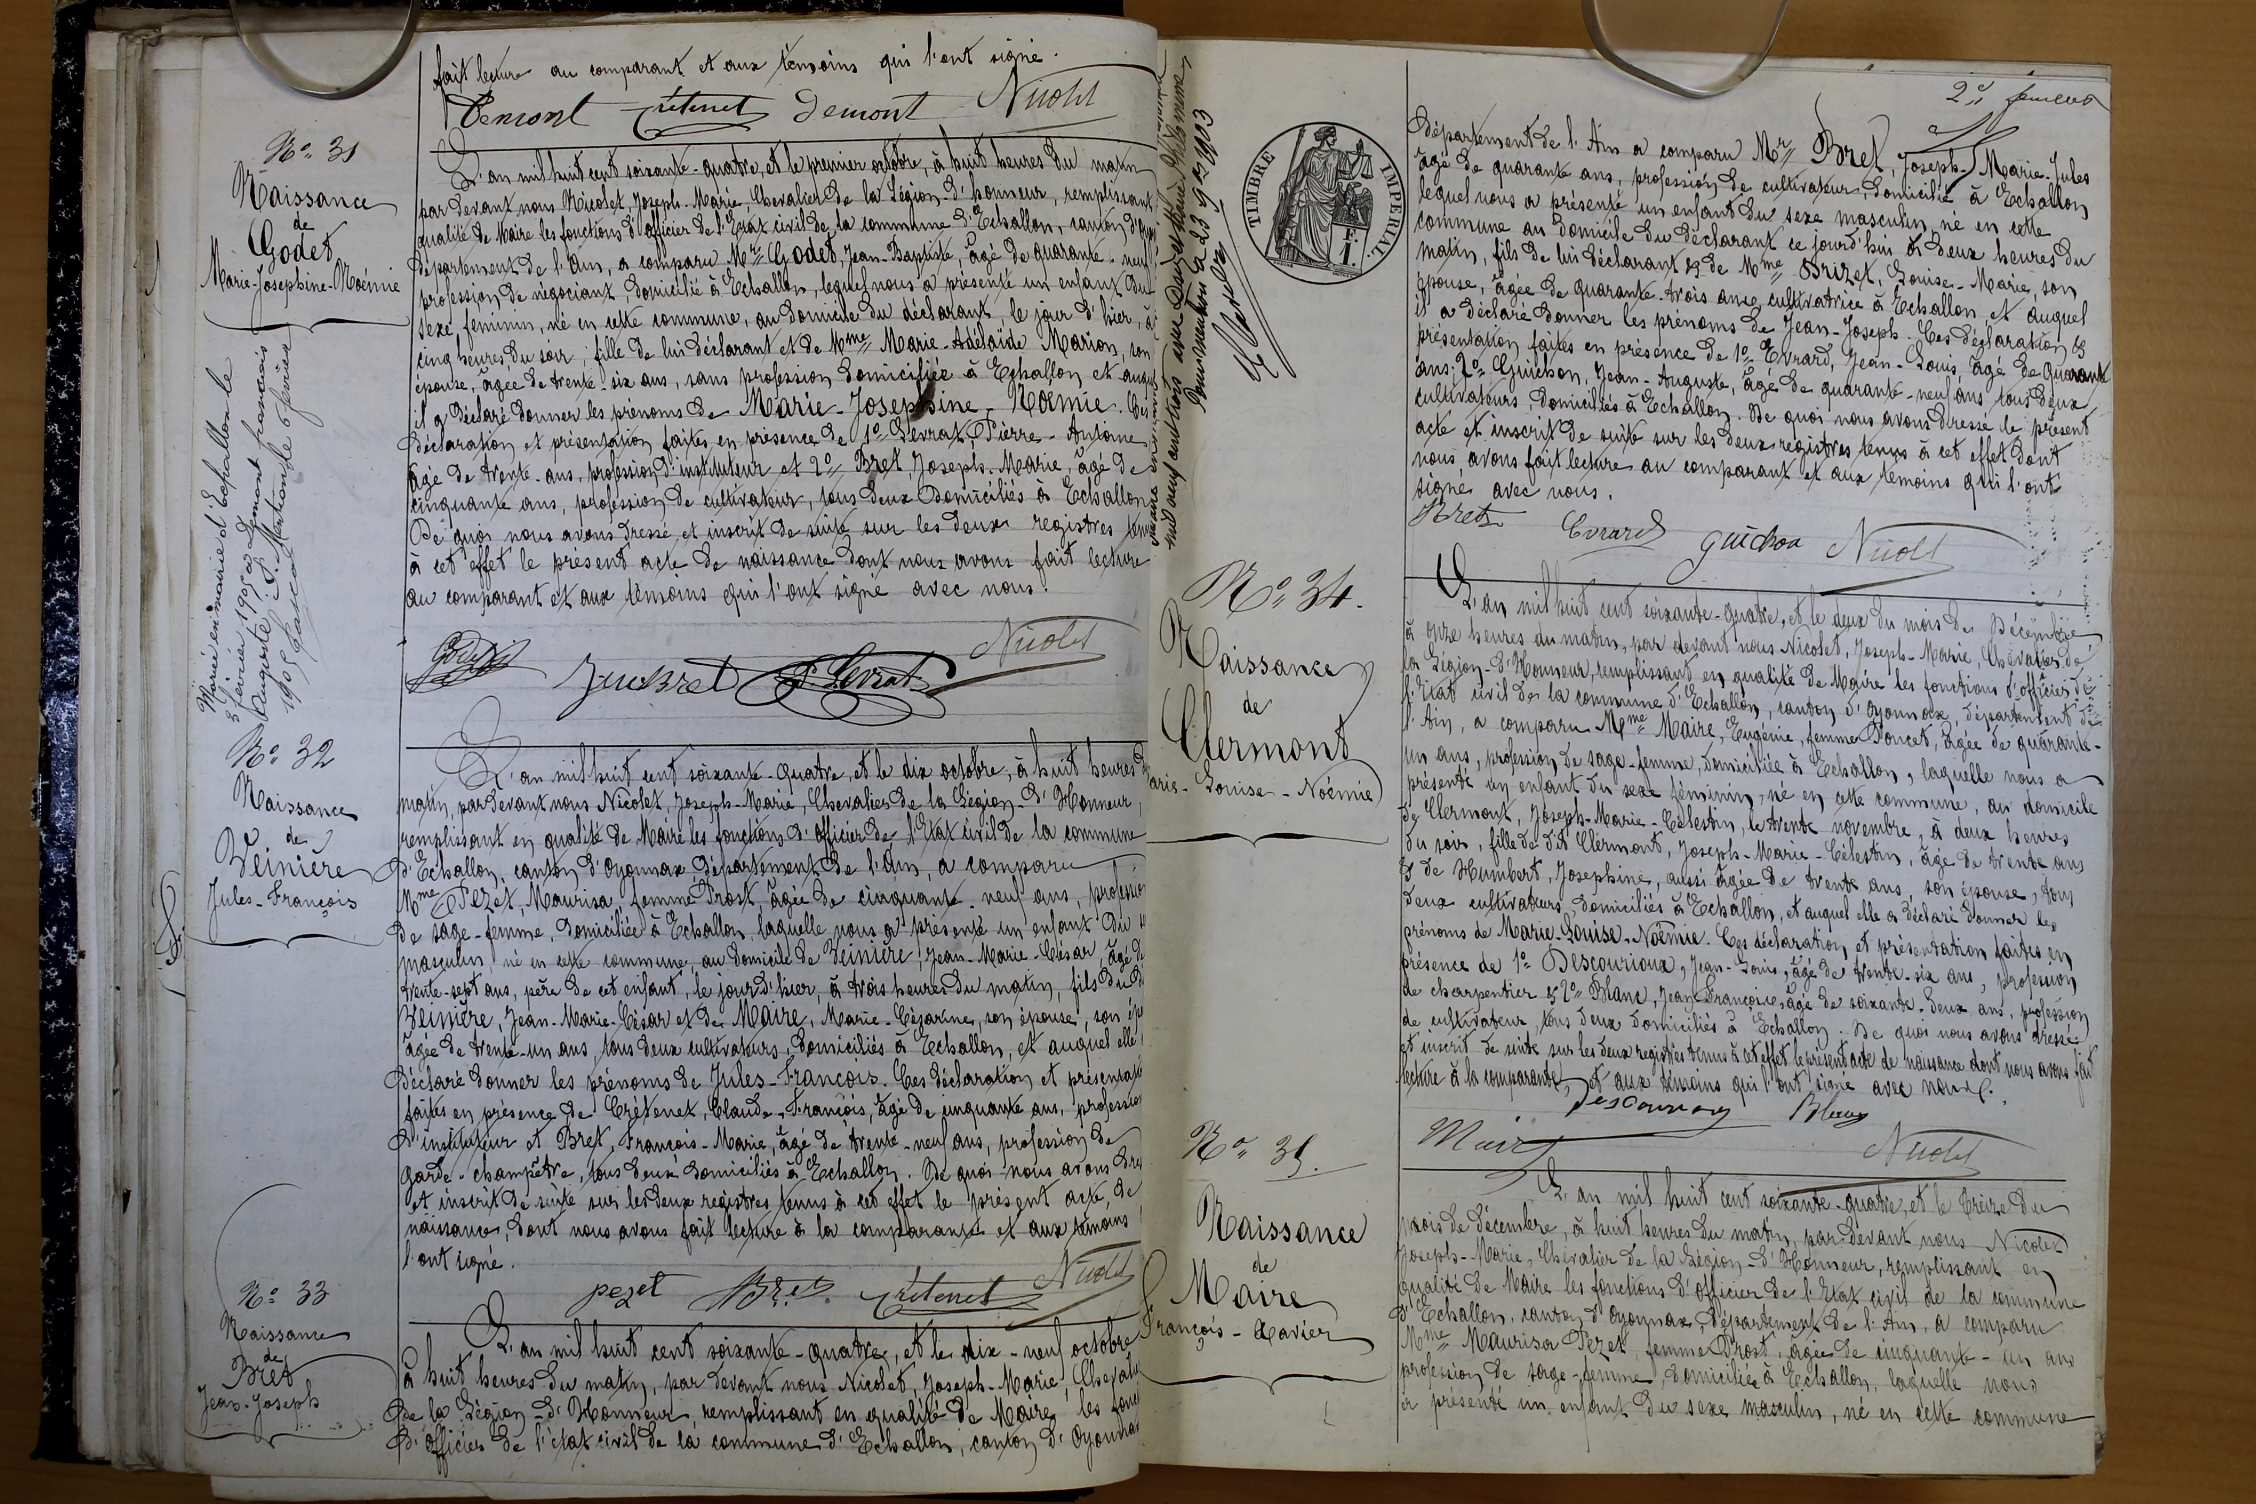 fait lecture au comparant et aux témoins qui l'ont signé.
Demont Crétenet Demont Nicolet
No. 31
Naissance
de
Godet
Marie-Josephine-Noémie
Marié en mairie d'Echallon le
février 1905 Demont François
Auguste
1905
L'an mil huit cent soixante-quatre, et le premier octobre, à huit heures du matin
par devant nous Nicolet, Joseph-Marie, Chevalier de la Légion-d'honneur, remplissant
qualité de Maire les fonctions d'officier de l'Etat civil de la commune d'Echallon, canton d'Oyon
département de l'Ain, a comparu Mr. Godet, Jean-Baptiste, âgé de quarante-neuf
profession de négociant, domicilié à Echallon, lequel nous a présenté un enfant du
sexe féminin, né en cette commune, au domicile du déclarant, le jour d'hier, à
cinq heures du soir, fille de lui déclarant et de Mme Marie-Adélaïde Marion, son
épouse, âgée de trente-six ans, sans profession domiciliée à Echallon et auquel
il a déclaré donner les prénoms de Marie-Josephine-Noémie. Ces
déclaration et présentation faites en présence de 1o Levrat Pierre-Antoine
âgé de trente ans, profession d'instituteur et 2o Bret, Joseph-Marie, âgé de
cinquante ans, profession de cultivateur, tous deux domiciliés à Echallon
De quoi nous avons dressé et inscrit de suite sur les deux registres tenus
à cet effet le présent acte de naissance dont nous avons fait lecture
au comparant et aux témoins qui l'ont signé avec nous.
Godet Bret P. Levrat Nicolet
No. 32
Naissance
de
Veinière
Jules-François
L'an mil huit cent soixante-quatre, et le dix octobre, à huit heures d
matin, par devant nous Nicolet, Joseph-Marie, Chevalier de la Légion-d'Honneur,
remplissant en qualité de Maire les fonctions d'officier de l'Etat civil de la commune
d'Echallon, canton d'Oyonnax département de l'Ain, a comparu
Mme Pezet, Maurisa femme Prost âgée de cinquante-neuf ans, profession
de sage-femme, domiciliée à Echallon, laquelle nous a présenté un enfant du s
masculin, né en cette commune, au domicile de Veinière, Jean-Marie-César, âgé de
trente-sept ans, père de cet enfant, le jour d'hier, à trois heures du matin, fils du d
Veinière, Jean-Marie-César et de Maire, Marie-Césarine, son épouse, son ép
âgée de trente-un ans, tous deux cultivateurs, domiciliés à Echallon, et auquel elle
déclaré donner les prénoms de Jules-François. Ces déclaration et présentation
faites en présence de Crétenet, Claude-François, âgé de cinquante ans, profession
d'instituteur et Bret, François-Marie, âgé de trente-neuf ans, profession de
garde-champêtre, tous deux domiciliés à Echallon. De quoi nous avons dres
et inscrit de suite sur les deux registres tenus à cet effet le présent acte de
naissance, dont nous avons fait lecture à la comparante et aux témoins
l'ont signé.
pezet Bret Crétenet Nicolet
No. 33
Naissance
de
Bret
Jean-Joseph
L'an mil huit cent soixante-quatre, et le dix-neuf octobre
à huit heures du matin, par devant nous Nicolet, Joseph-Marie, Chevalier
de la Légion-d'Honneur, remplissant en qualité de Maire les fonct
d'officier de l'état civil de la commune d'Echallon, canton d'Oyonnax
2e feuillet
TIMBRE IMPERIAL
F.
1.
mil neuf cent trois avec
1903
département de l'Ain a comparu Mr. Bret, Joseph-Marie-Jules
âgé de quarante ans, profession de cultivateur, domicilié à Echallon
lequel nous a présenté un enfant du sexe masculin, né en cette
commune au domicile du déclarant ce jourd'hui à deux heures du
matin, fils de lui déclarant & de Mme Brizet, Louise-Marie, son
épouse, âgée de quarante-trois ans, cultivatrice à Echallon, et auquel
il a déclaré donner les prénoms de Jean-Joseph. Ces déclaration &
présentation faites en présence de 1o Evrard, Jean-Louis, âgé de quarante
ans, 2o Guichon, Jean-Auguste, âgé de quarante-neuf ans tous deux
cultivateurs, domiciliés à Echallon. De quoi nous avons dressé le présent
acte et inscrit de suite sur les deux registres tenus à cet effet dont
nous avons fait lecture au comparant et aux témoins qui l'ont
signé avec nous.
Bret Evrard guichon Nicolet
No. 34.
Naissance
de
Clermont
arie-Louise-Noémie
L'an mil huit cent soixante-quatre, et le deux du mois de Décembre
à onze heures du matin, par devant nous Nicolet, Joseph-Marie, Chevalier de
la Légion-d'Honneur, remplissant en qualité de Maire les fonctions d'officier de
l'Etat civil de la commune d'Echallon, canton d'Oyonnax, département de
l'Ain, a comparu Mme Maire, Eugénie, femme Poncet, âgée de quarante-
un ans, profession de sage-femme, domiciliée à Echallon, laquelle nous a
présenté un enfant du sexe féminin, né en cette commune, au domicile
de Clermont, Joseph-Marie-Célestin, le trente novembre, à deux heures
du soir, fille de dit Clermont, Joseph-Marie-Célestin, âgé de trente ans
& de Humbert, Josephine, aussi âgée de trente ans, son épouse, tous
deux cultivateurs, domiciliés à Echallon, et auquel elle a déclaré donner les
prénoms de Marie-Louise-Noémie. Ces déclaration et présentation faites en
présence de 1o Descourioux, Jean-Louis, âgé de trente-six ans, profession
de charpentier & 2o Blanc, Jean-François, âgé de soixante-deux ans, profession
de cultivateur, tous deux domiciliés à Echallon. De quoi nous avons dressé
et inscrit de suite sur les deux registres tenus à cet effet le présent acte de naissance dont nous avons fait
lecture à la comparante et aux témoins qui l'ont signé avec nous.
Maire Descourioux Blanc Nicolet
No. 35.
Naissance
de
Maire
François-Xavier
L'an mil huit cent soixante-quatre, et le treize du
mois de décembre, à huit heures du matin, par devant nous Nicolet
Joseph-Marie, Chevalier de la Légion-d'Honneur, remplissant en
qualité de Maire les fonctions d'officier de l'Etat civil de la commune
d'Echallon, canton d'Oyonnax, département de l'Ain, a comparu
Mme Maurisa Pezet, femme Prost, âgée de cinquante-un ans
profession de sage-femme, domiciliée à Echallon, laquelle nous
a présenté un enfant du sexe masculin, né en cette commune